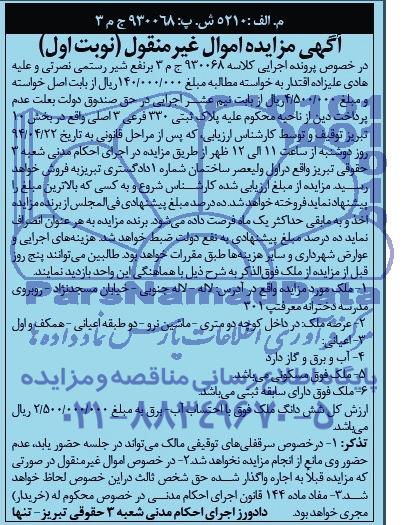 م. الف: ۵۲۱۰ ش. پ: ۹۳۰۰۶۸ ج م ۳
آگهی مزایده اموال غیر منقول (نوبت اول)
در خصوص پرونده اجرایی کلاسه ۹۳۰۰۶۸ ج م ۳ برنفع شیر رستمی نصرتی و علیه
هادی علیزاده اقتدار به خواسته مطالبه مبلغ ۱۴۰/۰۰۰/۰۰۰ ریال از بابت اصل خواسته
و مبلغ ۴/۵۰۰/۰۰۰ ریال از بابت نیم عشر اجرایی در حق صندوق دولت بعلت عدم
پرداخت دین از ناحیه محکوم علیه پلاک ثبتی ۳۳۰ فرعی ۳ اصلی واقع در بخش ۱۰
تبریز توقیف و توسط کارشناس ارزیابی که پس از مراحل قانونی به تاریخ ۹۴/۰۴/۲۲
روز دوشنبه از ساعت ۱۱ الی ۱۲ ظهر از طریق مزایده در اجرای احکام مدنی شعبه ۳
حقوقی تبریز واقع در اول ولیعصر ساختمان شماره ۱ دادگستری تبریز به فروش خواهد
رسید. مزایده از مبلغ ارزیابی شده کارشناس شروع و به کسی که بالاترین مبلغ را
پیشنهاد نماید فروخته خواهد شد. ده درصد مبلغ پیشنهادی فی المجلس از برنده مزایده
اخذ و به مابقی حداکثر یک ماه فرصت داده می شود. برنده مزایده به هر عنوان انصراف
نماید ده درصد مبلغ پیشنهادی به نفع دولت ضبط خواهد شد. هزینه های اجرایی و
عوارض شهرداری و سایر هزینه ها طبق مقررات خواهد بود. طالبین می توانند پنج روز
قبل از مزایده از ملک فوق الذکر به شرح ذیل با هماهنگی این واحد بازدید نمایند.
۱- ملک مورد مزایده واقع در آدرس: لاله - لاله جنوبی - خیابان مسجدنژاد - روبروی
مدرسه دخترانه معرفت پ ۳۰۱
۲- عرصه ملک: در داخل کوچه دو متری - ماشین نرو - دو طبقه اعیانی - همکف و اول
۳- اعیانی:
۴- آب و برق و گاز دارد
۵- ملک فوق مسکونی می باشد.
۶- ملک فوق دارای سابقه ثبتی می باشد.
ارزش کل شش دانگ ملک فوق با احتساب آب - برق به مبلغ ۲/۵۰۰/۰۰۰/۰۰۰ ریال
می باشد.
تذکر: ۱- در خصوص سرقفلی های توقیفی مالک می تواند در جلسه حضور یابد، عدم
حضور وی مانع از انجام مزایده نخواهد شد. ۲- در خصوص اموال غیر منقول در صورتی
که مزایده قبلاً به اجاره واگذار شده حق شخص ثالث در این خصوص لحاظ خواهد
شد. ۳- مفاد ماده ۱۴۴ قانون اجرای احکام مدنی در خصوص محکوم له (خریدار)
مجری خواهد بود. دادورز اجرای احکام مدنی شعبه ۳ حقوقی تبریز - تنها
ParsNamadData
۰۲۱-۸۸۳۴۹۶۷۰-۵